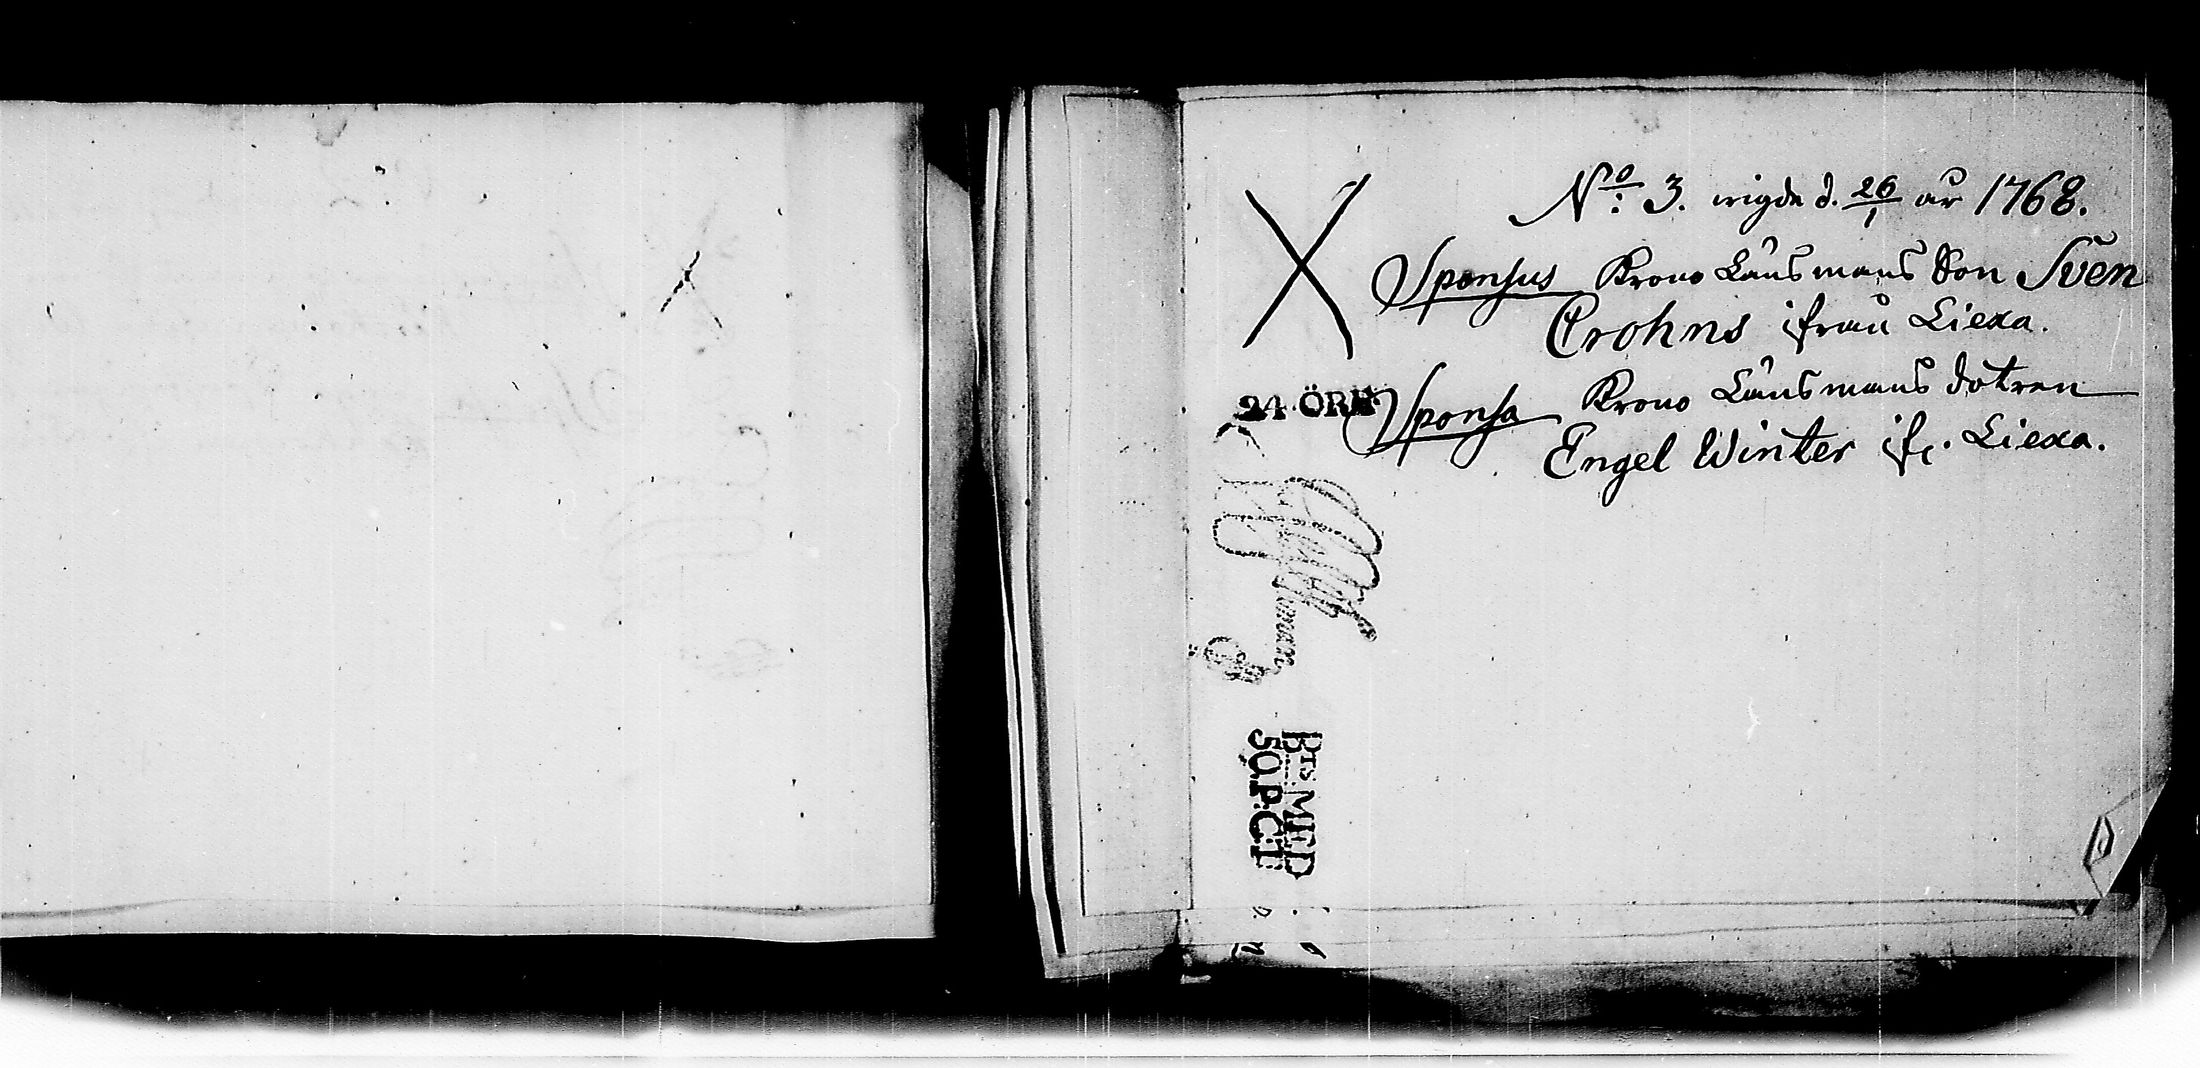 No: 3. wigde d. 26/1 år 1768.
Sponsus Krono Länsmans Son Sven
Crohns ifrån Liexa.
24 ÖRE
Sponsa Krono Länsmans dotren
Engel Winter ifr. Liexa.
BTS MED
50 P.CT